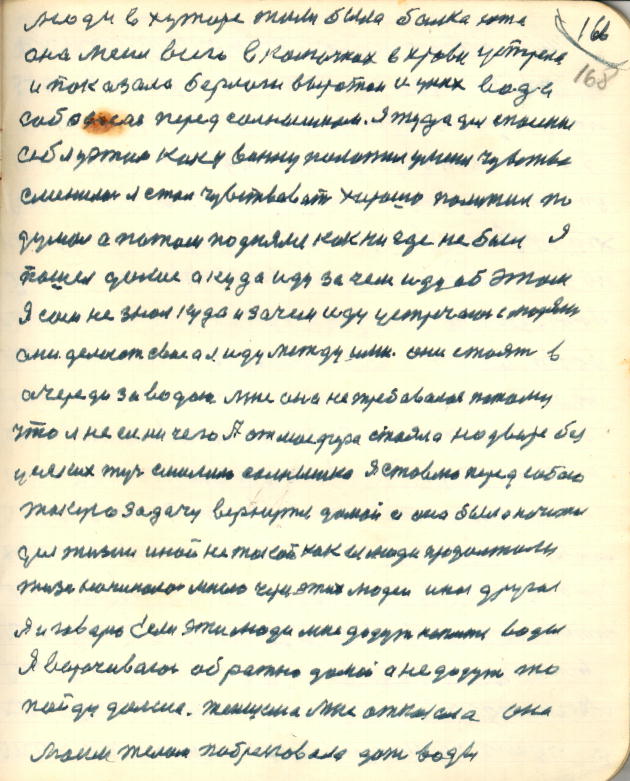 люди в хуторе жили была балка яма 166
она меня всего в комочках в крови устрела 168
и показала берлоги вырыты и у них вода
собо перед солнышком. Я туда для спасения
как в ванну положили у меня чувства
сменились я стал чувствовать хорошо полежил по
думал а потом подняли как нигде не был Я
пошел дальше а куда иду зачем иду об этом
Я сам не знал куда и зачем иду устречаюсь с людям
они делают свое а я иду между ими. они стоят в
очереди за водой мне она не требавалася потому
что я не ел ничего Атмосфера стояла на дворе без
всяких туч смалило солнышко Я ставлю перед собою
такую задачу вернутся домой а она была
для жизни иной не такой как ее люди продолжали
жизь много через этих людей иная другая
Я и говарю Если эти люди мне дадут напитя воды
Я ворочиваюсь обратно домой а не дадут то
пойду дальше. женщина мне отказала она
моим телом побреговала дать воды